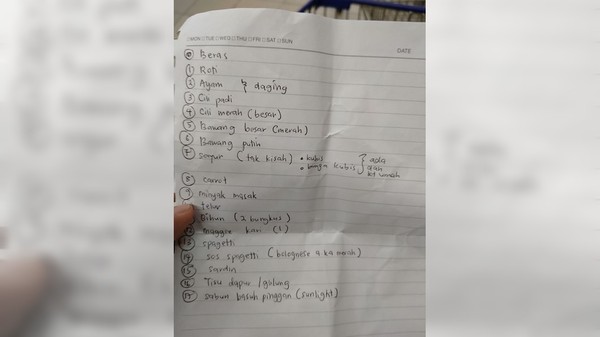 □MON □TUE □WED □THU □FRI □SAT □SUN
DATE
0 Beras
1 Roti
2 Ayam & daging
3 Cili padi
4 Cili merah (besar)
5 Bawang besar (merah)
6 Bawang putih
7 Sayur (tak kisah) • kubis • bunga kubis } ada dah kt rumah
8 carrot
9 minyak masak
telur
Bihun (2 bungkus)
maggie kari (1)
13 spagetti
14 sos spagetti (bolognese 4 ka merah)
15 sardin
16 Tisu dapur / gulung
17 sabun basuh pinggan (sunlight)